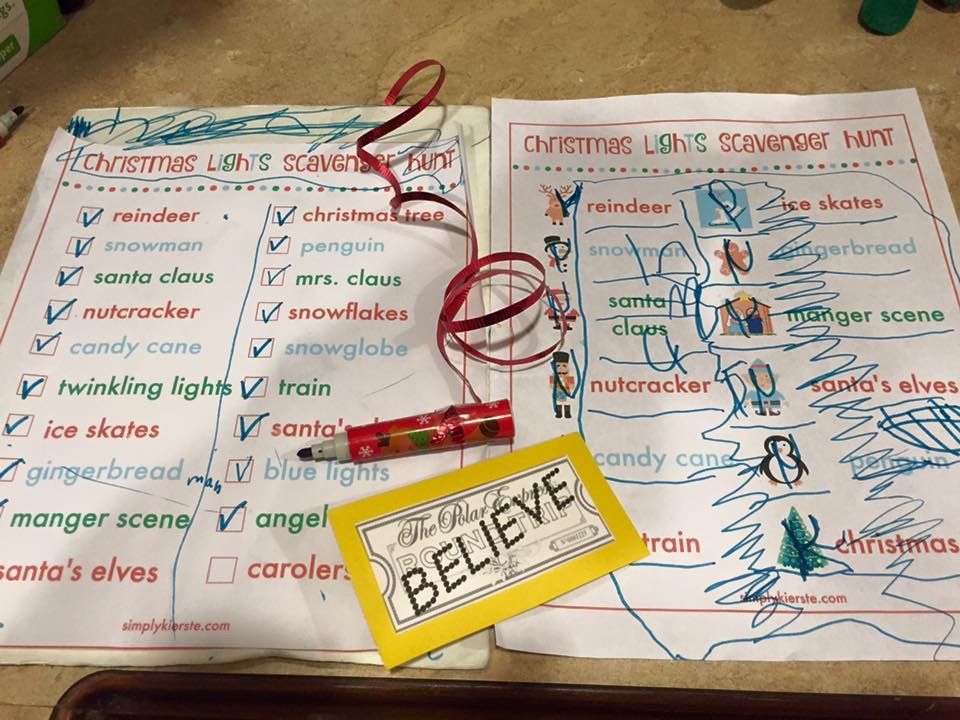 gs.
per
CHRISTMAS LIGHTS SCAVENGER HUNT
reindeer
snowman
santa claus
nutcracker
candy cane
twinkling lights
ice skates
gingerbread man
manger scene
santa's elves
christmas tree
penguin
mrs. claus
snowflakes
snowglobe
train
santa's
blue lights
angel
carolers
simplykierste.com
CHRISTMAS LIGHTS SCAVENGER HUNT
reindeer
snowman
santa
claus
nutcracker
candy cane
train
ice skates
gingerbread
manger scene
santa's elves
penguin
christmas
simplykierste.com
The Polar Express
ROUND TRIP
BELIEVE